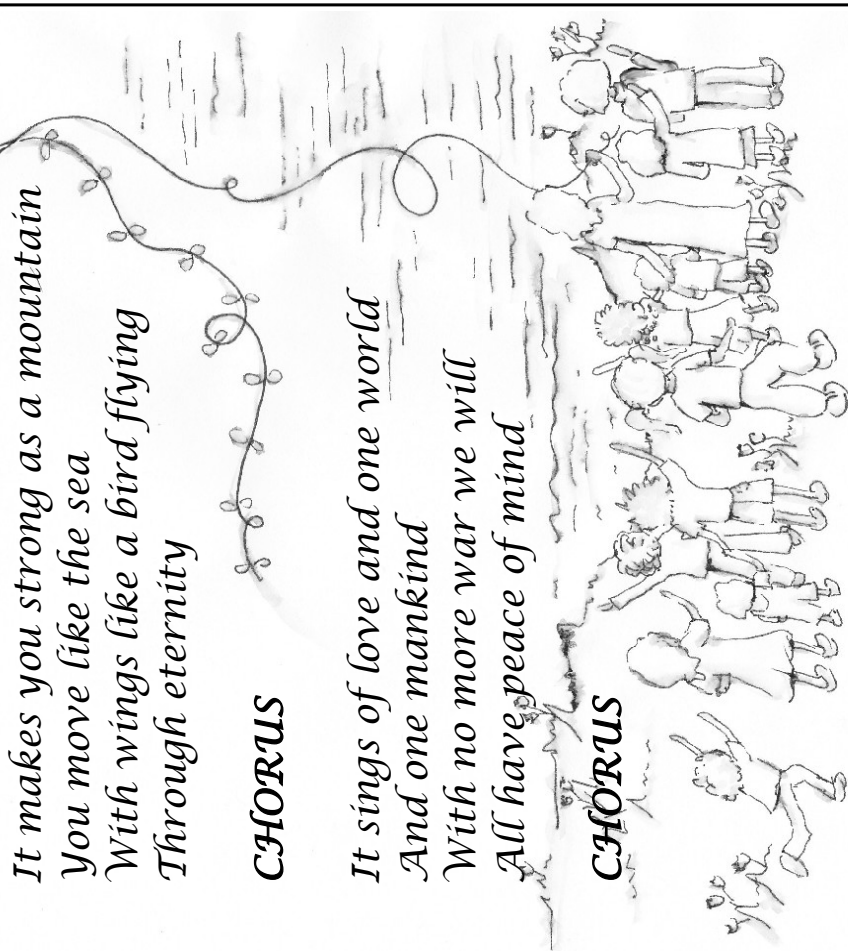 It makes you strong as a mountain
You move like the sea
With wings like a bird flying
Through eternity
CHORUS
It sings of love and one world
And one mankind
With no more war we will
All have peace of mind
CHORUS